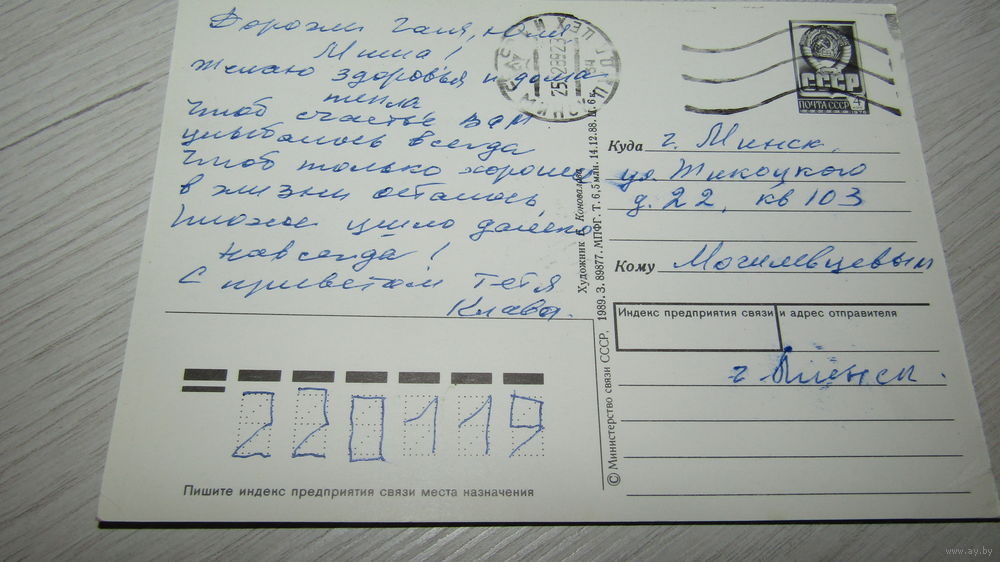 Дорогие Галя, Юля,
Миша!
Желаю здоровья и дома
тепла
Чтоб счастье Вам
улыбалось всегда
Чтоб только хорошее
в жизни осталось,
Плохое ушло далеко
навсегда!
С приветом тётя
Клава.
Пишите индекс предприятия связи места назначения
220119
© Министерство связи СССР. 1989. З. 89877. МПФГ. Т. 6,5 млн. 14.12.88. Ц. 6 к.
Художник Коновалова
МИНСК
СССР
ПОЧТА СССР
Куда г. Минск,
ул Жиновкого
д. 22, кв 103
Кому Могилевцевым
Индекс предприятия связи и адрес отправителя
г Минск.
www.ay.by